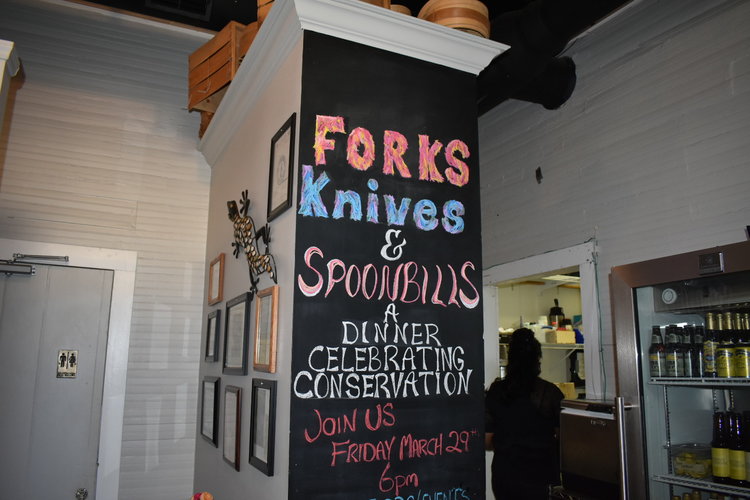 FORKS
Knives
&
SPOONBILLS
A
DINNER
CELEBRATING
CONSERVATION
JOIN US
FRIDAY MARCH 29TH
6pm